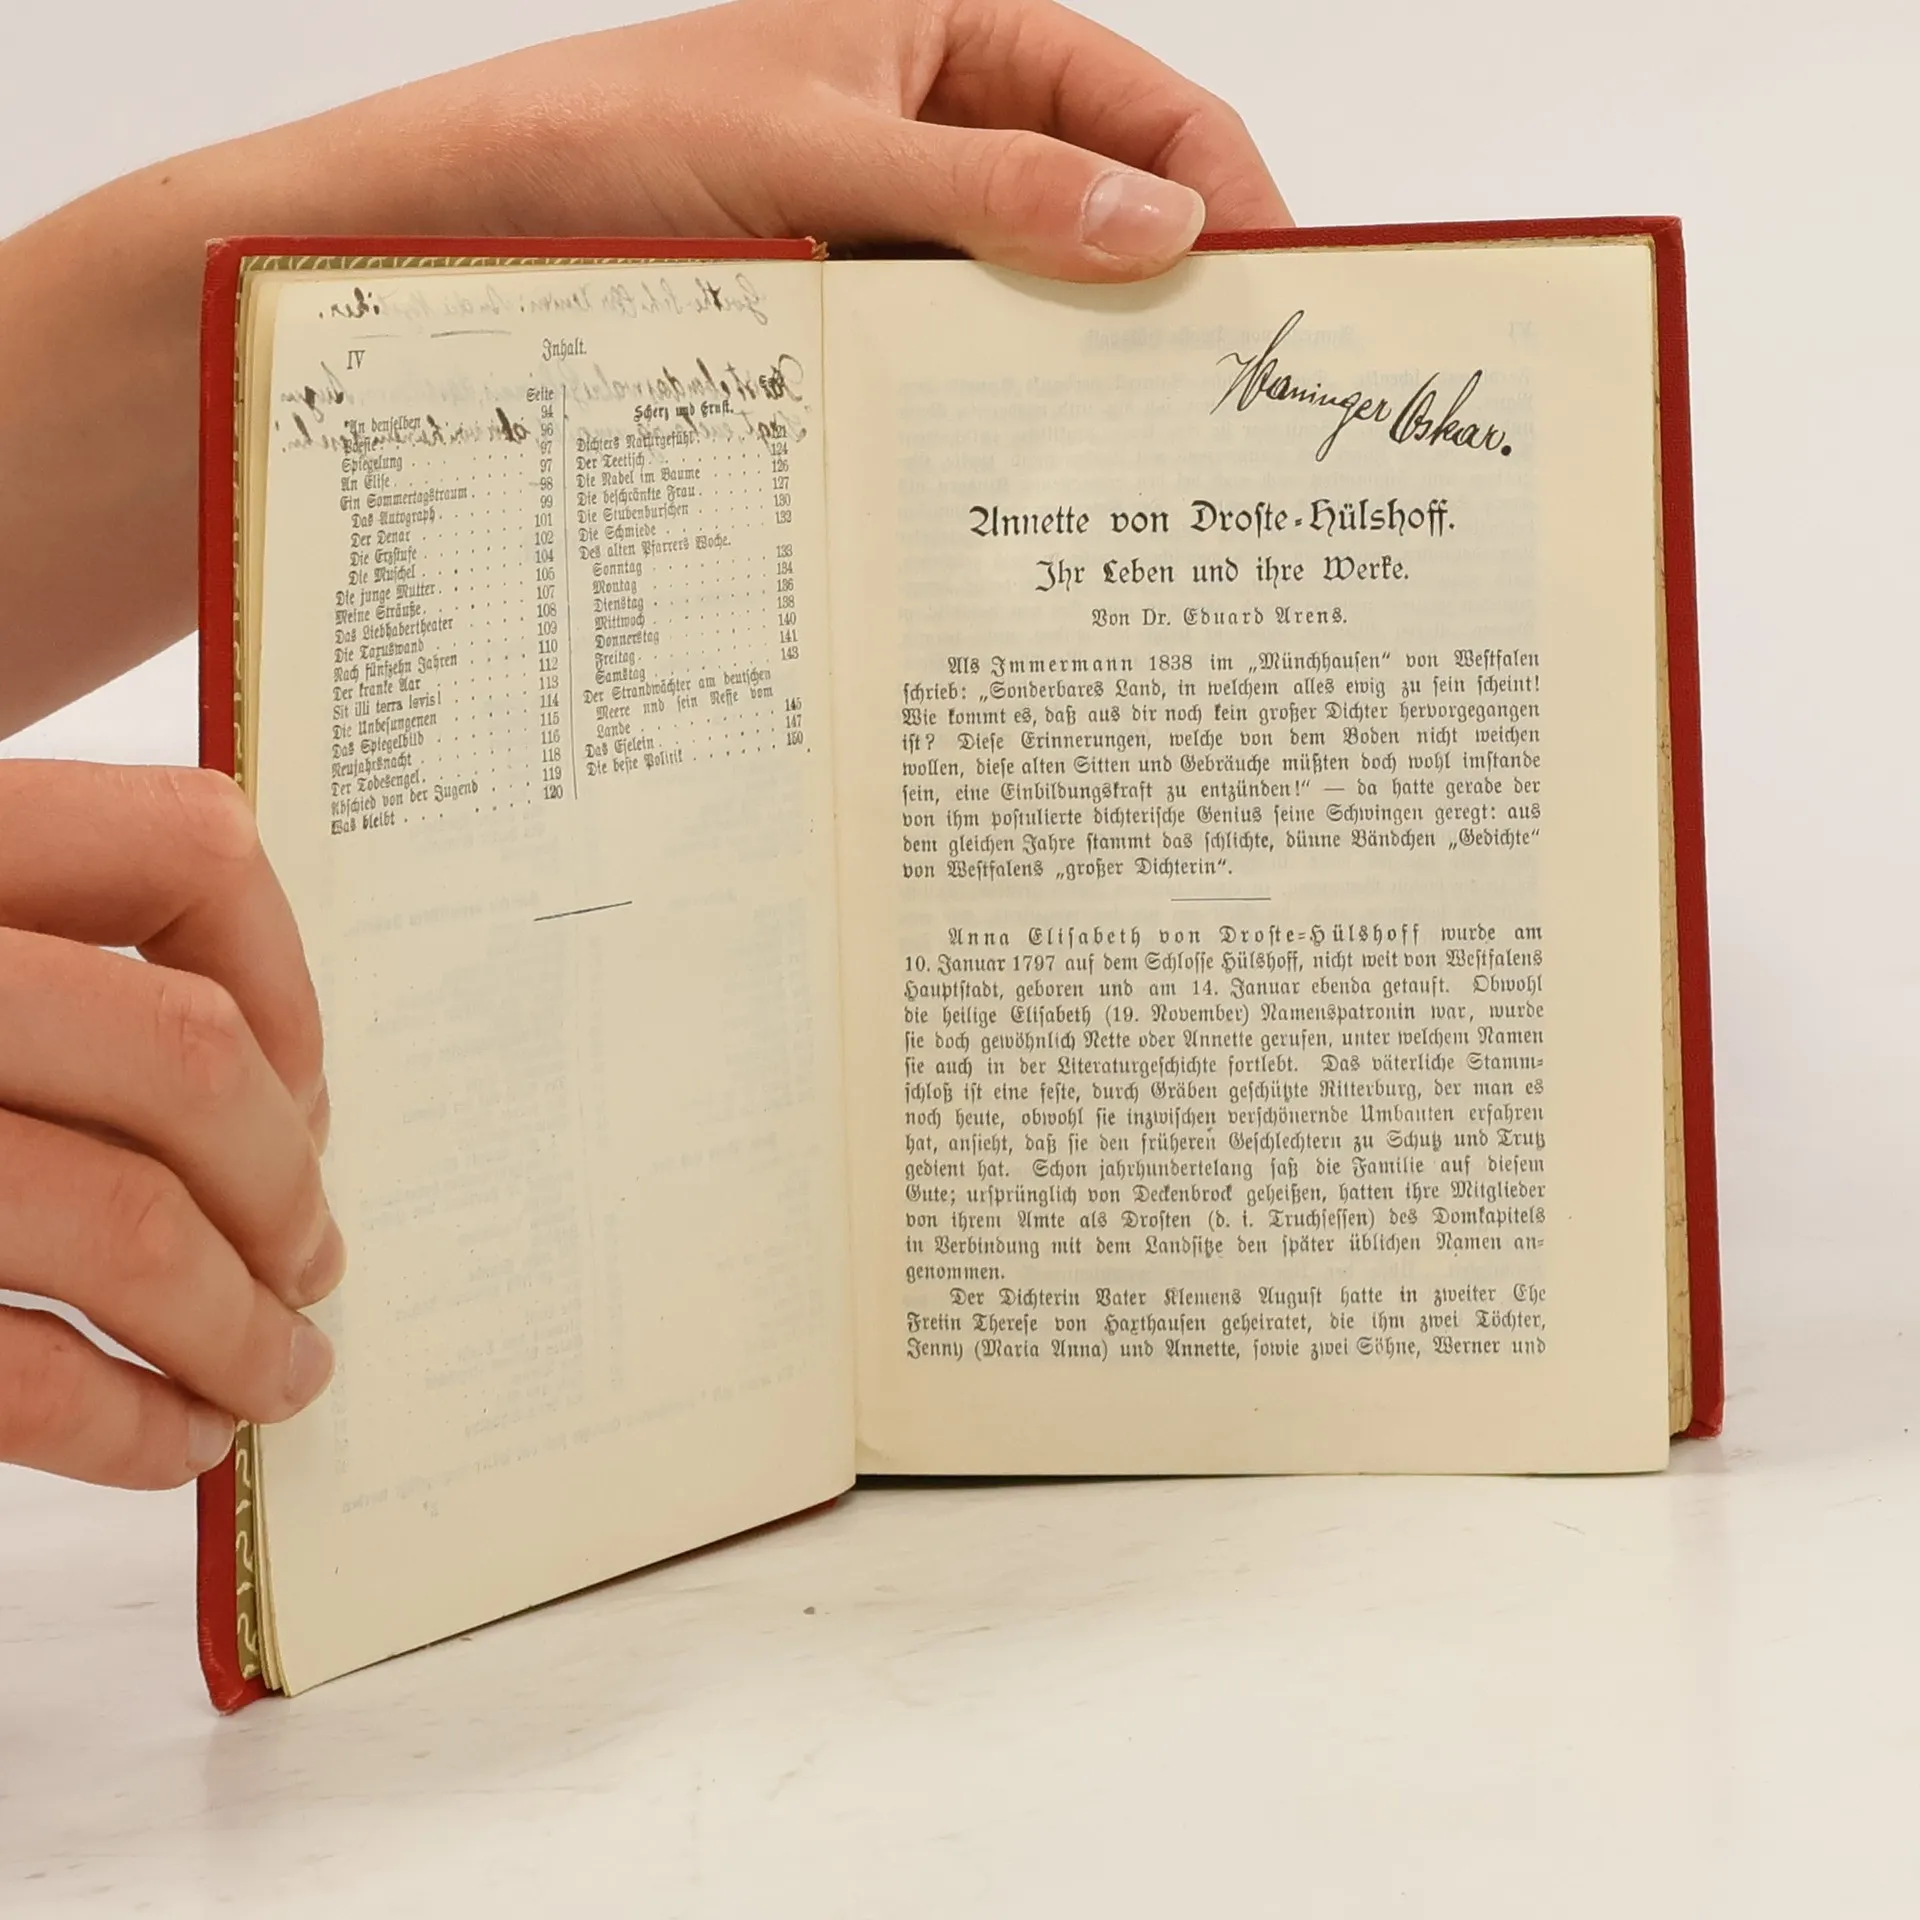 IV
Inhalt.
Seite
An denselben 94
Poesie 96
Spiegelung 97
An Elise 97
Ein Sommertagstraum 98
Das Autograph 99
Der Denar 101
Die Erzstufe 102
Die Muschel 104
Die junge Mutter 105
Meine Sträuße 107
Das Liebhabertheater 108
Die Taxuswand 109
Nach fünfzehn Jahren 110
Der kranke Aar 112
Sit illi terra levis! 113
Die Unbesungenen 114
Das Spiegelbild 115
Neujahrsnacht 116
Der Todesengel 118
Abschied von der Jugend 119
Was bleibt 120
Scherz und Ernst.
Dichters Naturgefühl 121
Der Teetisch 124
Die Nadel im Baume 126
Die beschränkte Frau 127
Die Stubenburschen 130
Die Schmiede 132
Des alten Pfarrers Woche.
Sonntag 133
Montag 134
Dienstag 136
Mittwoch 138
Donnerstag 140
Freitag 141
Samstag 143
Der Strandwächter am deutschen
Meere und sein Neffe vom
Lande 145
Das Eselein 147
Die beste Politik 150
Haninger Oskar.
Annette von Droste-Hülshoff.
Ihr Leben und ihre Werke.
Von Dr. Eduard Arens.
Als Immermann 1838 im „Münchhausen“ von Westfalen
schrieb: „Sonderbares Land, in welchem alles ewig zu sein scheint!
Wie kommt es, daß aus dir noch kein großer Dichter hervorgegangen
ist? Diese Erinnerungen, welche von dem Boden nicht weichen
wollen, diese alten Sitten und Gebräuche müßten doch wohl imstande
sein, eine Einbildungskraft zu entzünden!“ — da hatte gerade der
von ihm postulierte dichterische Genius seine Schwingen geregt: aus
dem gleichen Jahre stammt das schlichte, dünne Bändchen „Gedichte“
von Westfalens „großer Dichterin“.
Anna Elisabeth von Droste-Hülshoff wurde am
10. Januar 1797 auf dem Schlosse Hülshoff, nicht weit von Westfalens
Hauptstadt, geboren und am 14. Januar ebenda getauft. Obwohl
die heilige Elisabeth (19. November) Namenspatronin war, wurde
sie doch gewöhnlich Nette oder Annette gerufen, unter welchem Namen
sie auch in der Literaturgeschichte fortlebt. Das väterliche Stamm-
schloß ist eine feste, durch Gräben geschützte Ritterburg, der man es
noch heute, obwohl sie inzwischen verschönernde Umbauten erfahren
hat, ansieht, daß sie den früheren Geschlechtern zu Schutz und Trutz
gedient hat. Schon jahrhundertelang saß die Familie auf diesem
Gute; ursprünglich von Deckenbrock geheißen, hatten ihre Mitglieder
von ihrem Amte als Drosten (d. i. Truchsessen) des Domkapitels
in Verbindung mit dem Landsitze den später üblichen Namen an-
genommen.
Der Dichterin Vater Klemens August hatte in zweiter Ehe
Freiin Therese von Haxthausen geheiratet, die ihm zwei Töchter,
Jenny (Maria Anna) und Annette, sowie zwei Söhne, Werner und